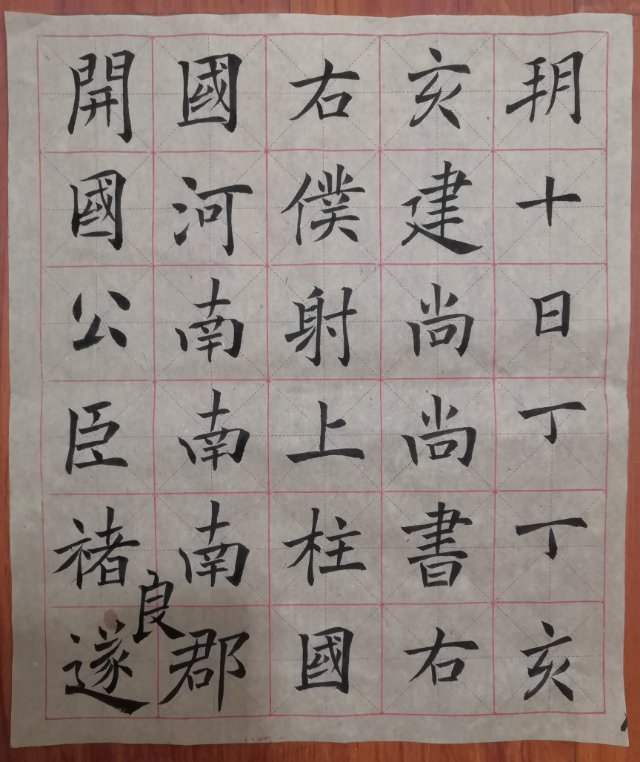 玥十日丁丁亥
亥建尚尚書右
右僕射上柱國
國河南南南郡
開國公臣褚遂良